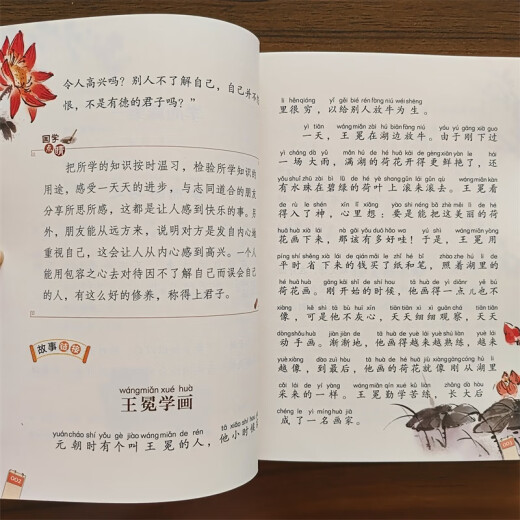 令人高兴吗？别人不了解自己，自己并不
恨，不是有德的君子吗？”
国学
点睛
把所学的知识按时温习，检验所学知识的
用途，感受一天天的进步，与志同道合的朋友
分享所思所感，这都是让人感到快乐的事。另
外，朋友能从远方来，说明对方是发自内心地
重视自己，这会让人从内心感到高兴。一个人
能用包容之心去对待因不了解自己而误会自己
的人，有这么好的修养，称得上君子。
故事链接
wángmiǎn xué huà
王冕学画
yuáncháo shí yǒu gè jiào wáng miǎn de rén tā xiǎo shí hou
元朝时有个叫王冕的人，他小时候
002
lǐ hěnqióng yǐ gěi bié rén fàng niú wéi shēng
里很穷，以给别人放牛为生。
yì tiān wáng miǎn zài hú biān fàng niú yóu yú gāng xià guo
一天，王冕在湖边放牛。由于刚下过
yì cháng dà yǔ mǎn hú de hé huā kāi de gèng xiān yàn le hái
一场大雨，满湖的荷花开得更鲜艳了，还
yǒu shuǐ zhū zài bì lǜ de hé yè shang gǔn lái gǔn qù wáng miǎn kàn
有水珠在碧绿的荷叶上滚来滚去。王冕看
de rù le shén xīn lǐ xiǎng yào shi néng bǎ zhè měi lì de hé
得入了神，心里想：要是能把这美丽的荷
huā huà xià lái nà gāi yǒu duō hǎo wa yú shì wáng miǎn yòng
花画下来，那该有多好哇！于是，王冕用
píng shí shěng xià lái de qián mǎi le zhǐ hé bǐ zhào zhe hú lǐ de
平时省下来的钱买了纸和笔，照着湖里的
hé huā huà gāng kāi shǐ de shí hou tā huà de yì diǎnr yě bú
荷花画。刚开始的时候，他画得一点儿也不
xiàng kě shì tā bù huī xīn tiān tiān xì xì guān chá tiān tiān
像，可是他不灰心，天天细细观察，天天
dòng shǒu huà jiàn jiàn de tā huà de yuè lái yuè shú liàn yuè lái
动手画。渐渐地，他画得越来越熟练，越来
yuè xiàng dào zuì hòu tā huà de hé huā jiù xiàng gāng cóng hú lǐ
越像，到最后，他画的荷花就像刚从湖里
cǎi lái de yí yàng wáng miǎn qín xué kǔ liàn zhǎng dà hòu
采来的一样。王冕勤学苦练，长大后
chéng le yì míng huà jiā
成了一名画家。
003